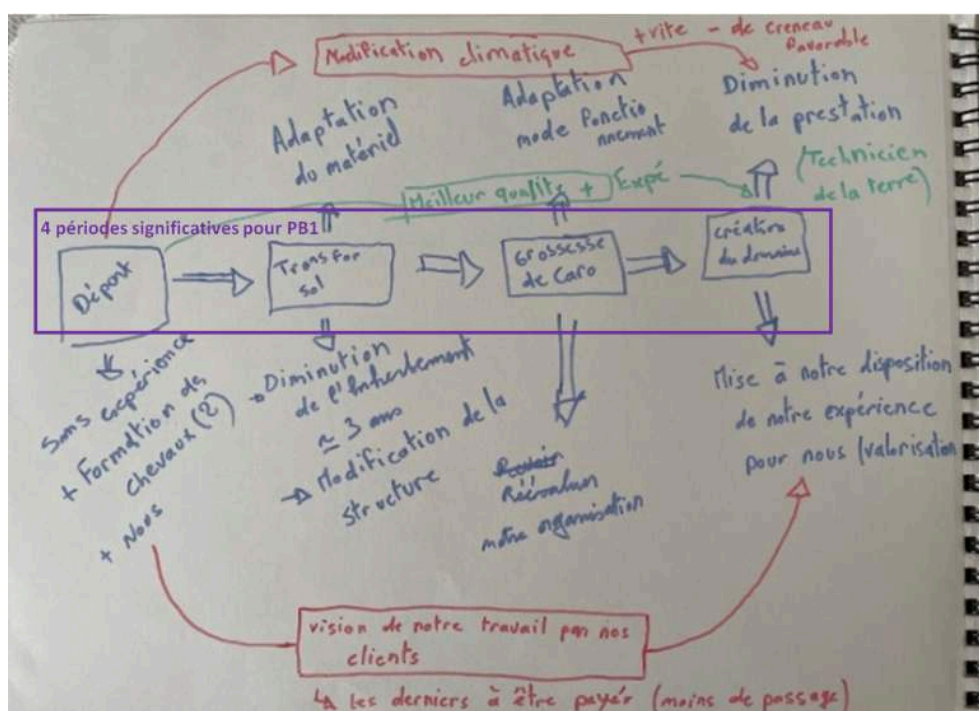 Modification climatique
+ vite - de creneau
favorable
Adaptation
du matériel
Adaptation
mode fonctio
nnement
Diminution
de la prestation
(Technicien
de la terre)
Meilleur qualité + Expé
4 périodes significatives pour PB1
Départ
Transfor
sol
Grossesse
de Caro
création
du domaine
Sans expérience
+ Formation de
chevaux (2)
+ Nous
Diminution
de l'Enherbement
≈ 3 ans
Modification de la
structure
Réévaluer
notre organisation
Mise à notre disposition
de notre expérience
pour nous (valorisation
vision de notre travail par nos
clients
les derniers à être payér (moins de passage)